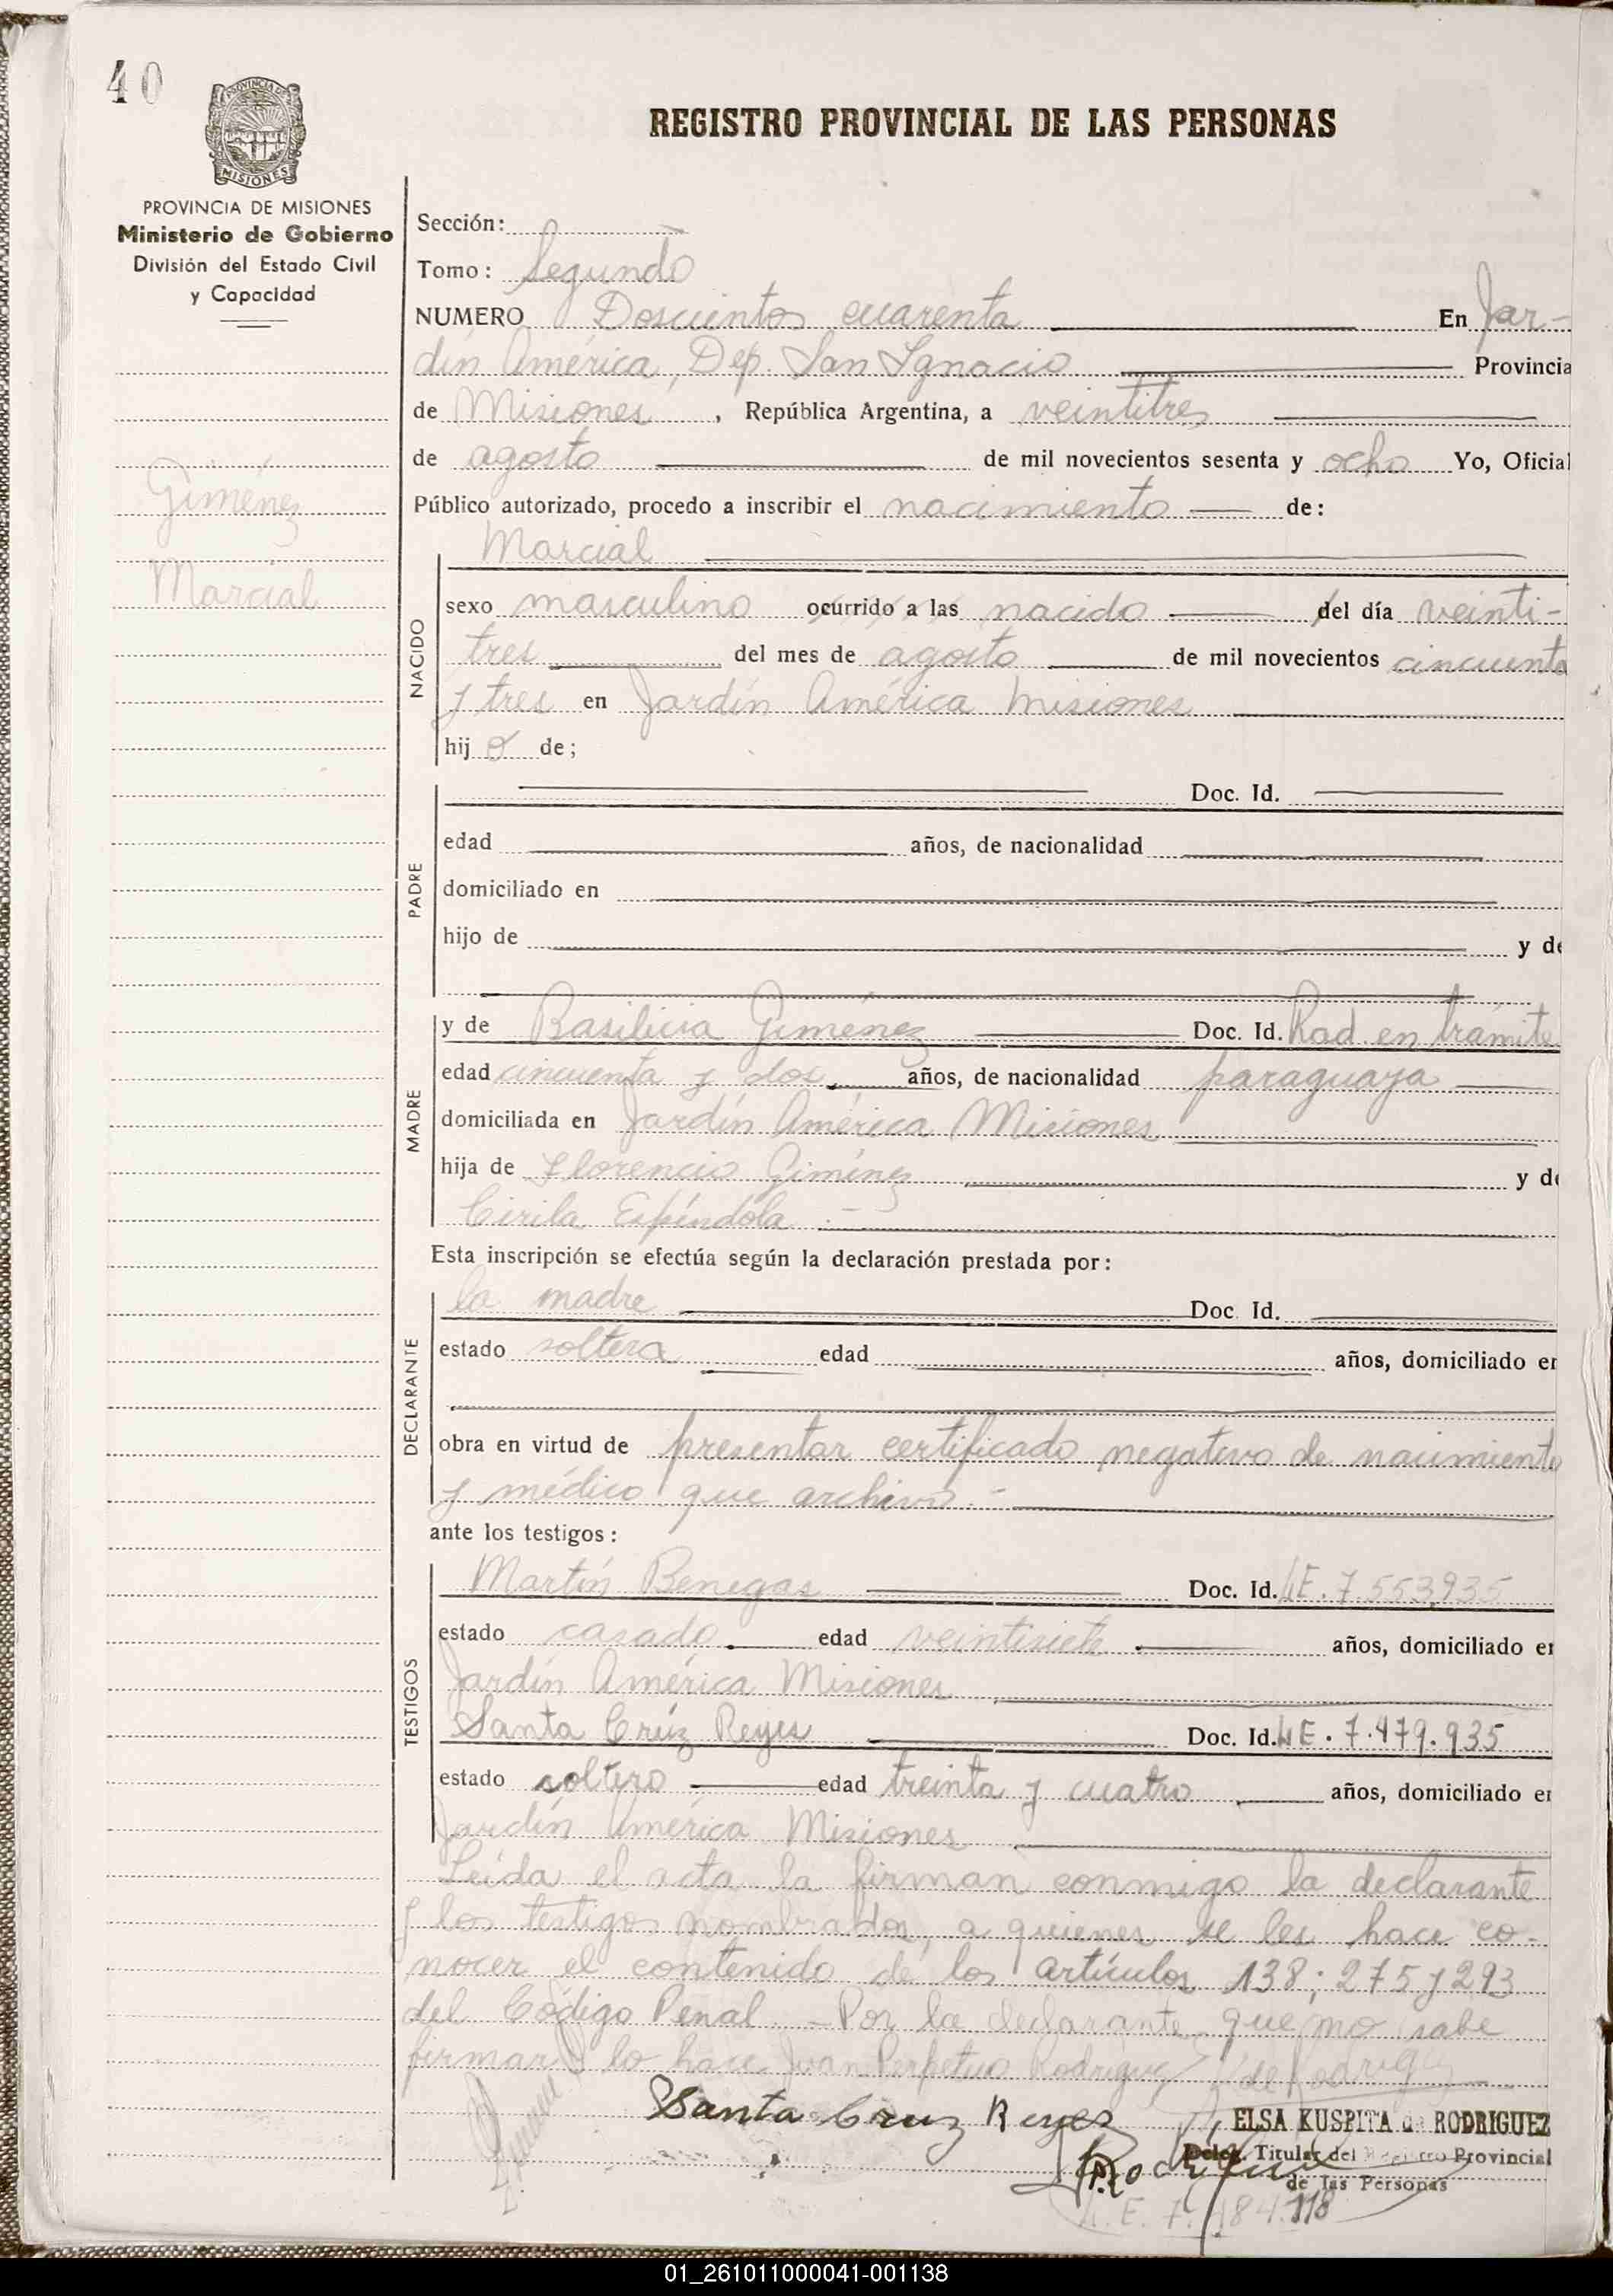 40
REGISTRO PROVINCIAL DE LAS PERSONAS
PROVINCIA DE MISIONES
Ministerio de Gobierno
División del Estado Civil
y Capacidad
Giménez
Marcial
Sección:
Tomo: Segundo
NUMERO Doscientos cuarenta En Jar-
dín América, Dep. San Ignacio Provincia
de Misiones, República Argentina, a veintitres
de agosto de mil novecientos sesenta y ocho Yo, Oficial
Público autorizado, procedo a inscribir el nacimiento de:
NACIDO
Marcial
sexo masculino ocurrido a las nacido del día veinti-
tres del mes de agosto de mil novecientos cincuenta
y tres en Jardín América Misiones
hijo de;
PADRE
Doc. Id.
edad años, de nacionalidad
domiciliado en
hijo de y de
MADRE
y de Basilicia Giménez Doc. Id. Rad. en trámite
edad cincuenta y dos años, de nacionalidad paraguaya
domiciliada en Jardín América Misiones
hija de Florencio Giminez y de
Cirila Espíndola.-
Esta inscripción se efectúa según la declaración prestada por:
DECLARANTE
la madre Doc. Id.
estado soltera edad años, domiciliado en
obra en virtud de presentar certificado negativo de nacimiento
y médico que archivo.-
ante los testigos:
TESTIGOS
Martín Benegas Doc. Id. LE. 7.553.935
estado casado edad veintisiete años, domiciliado en
Jardín América Misiones
Santa Crúz Reyes Doc. Id. LE. 7.479.935
estado soltero edad treinta y cuatro años, domiciliado en
Jardín América Misiones
Leída el acta la firman conmigo la declarante
y los testigos nombrados, a quienes se les hace co-
nocer el contenido de los artículos 138; 275 y 293
del Código Penal.- Por la declarante que no sabe
firmar lo hace Juan Perpetuo Rodríguez
de Rodriguez
Santa Cruz Reyes
ELSA KUSPITA de RODRIGUEZ
Deleg. Titular del Registro Provincial
de las Personas
Rodriguez
L.E. 7.184.118
01_261011000041-001138